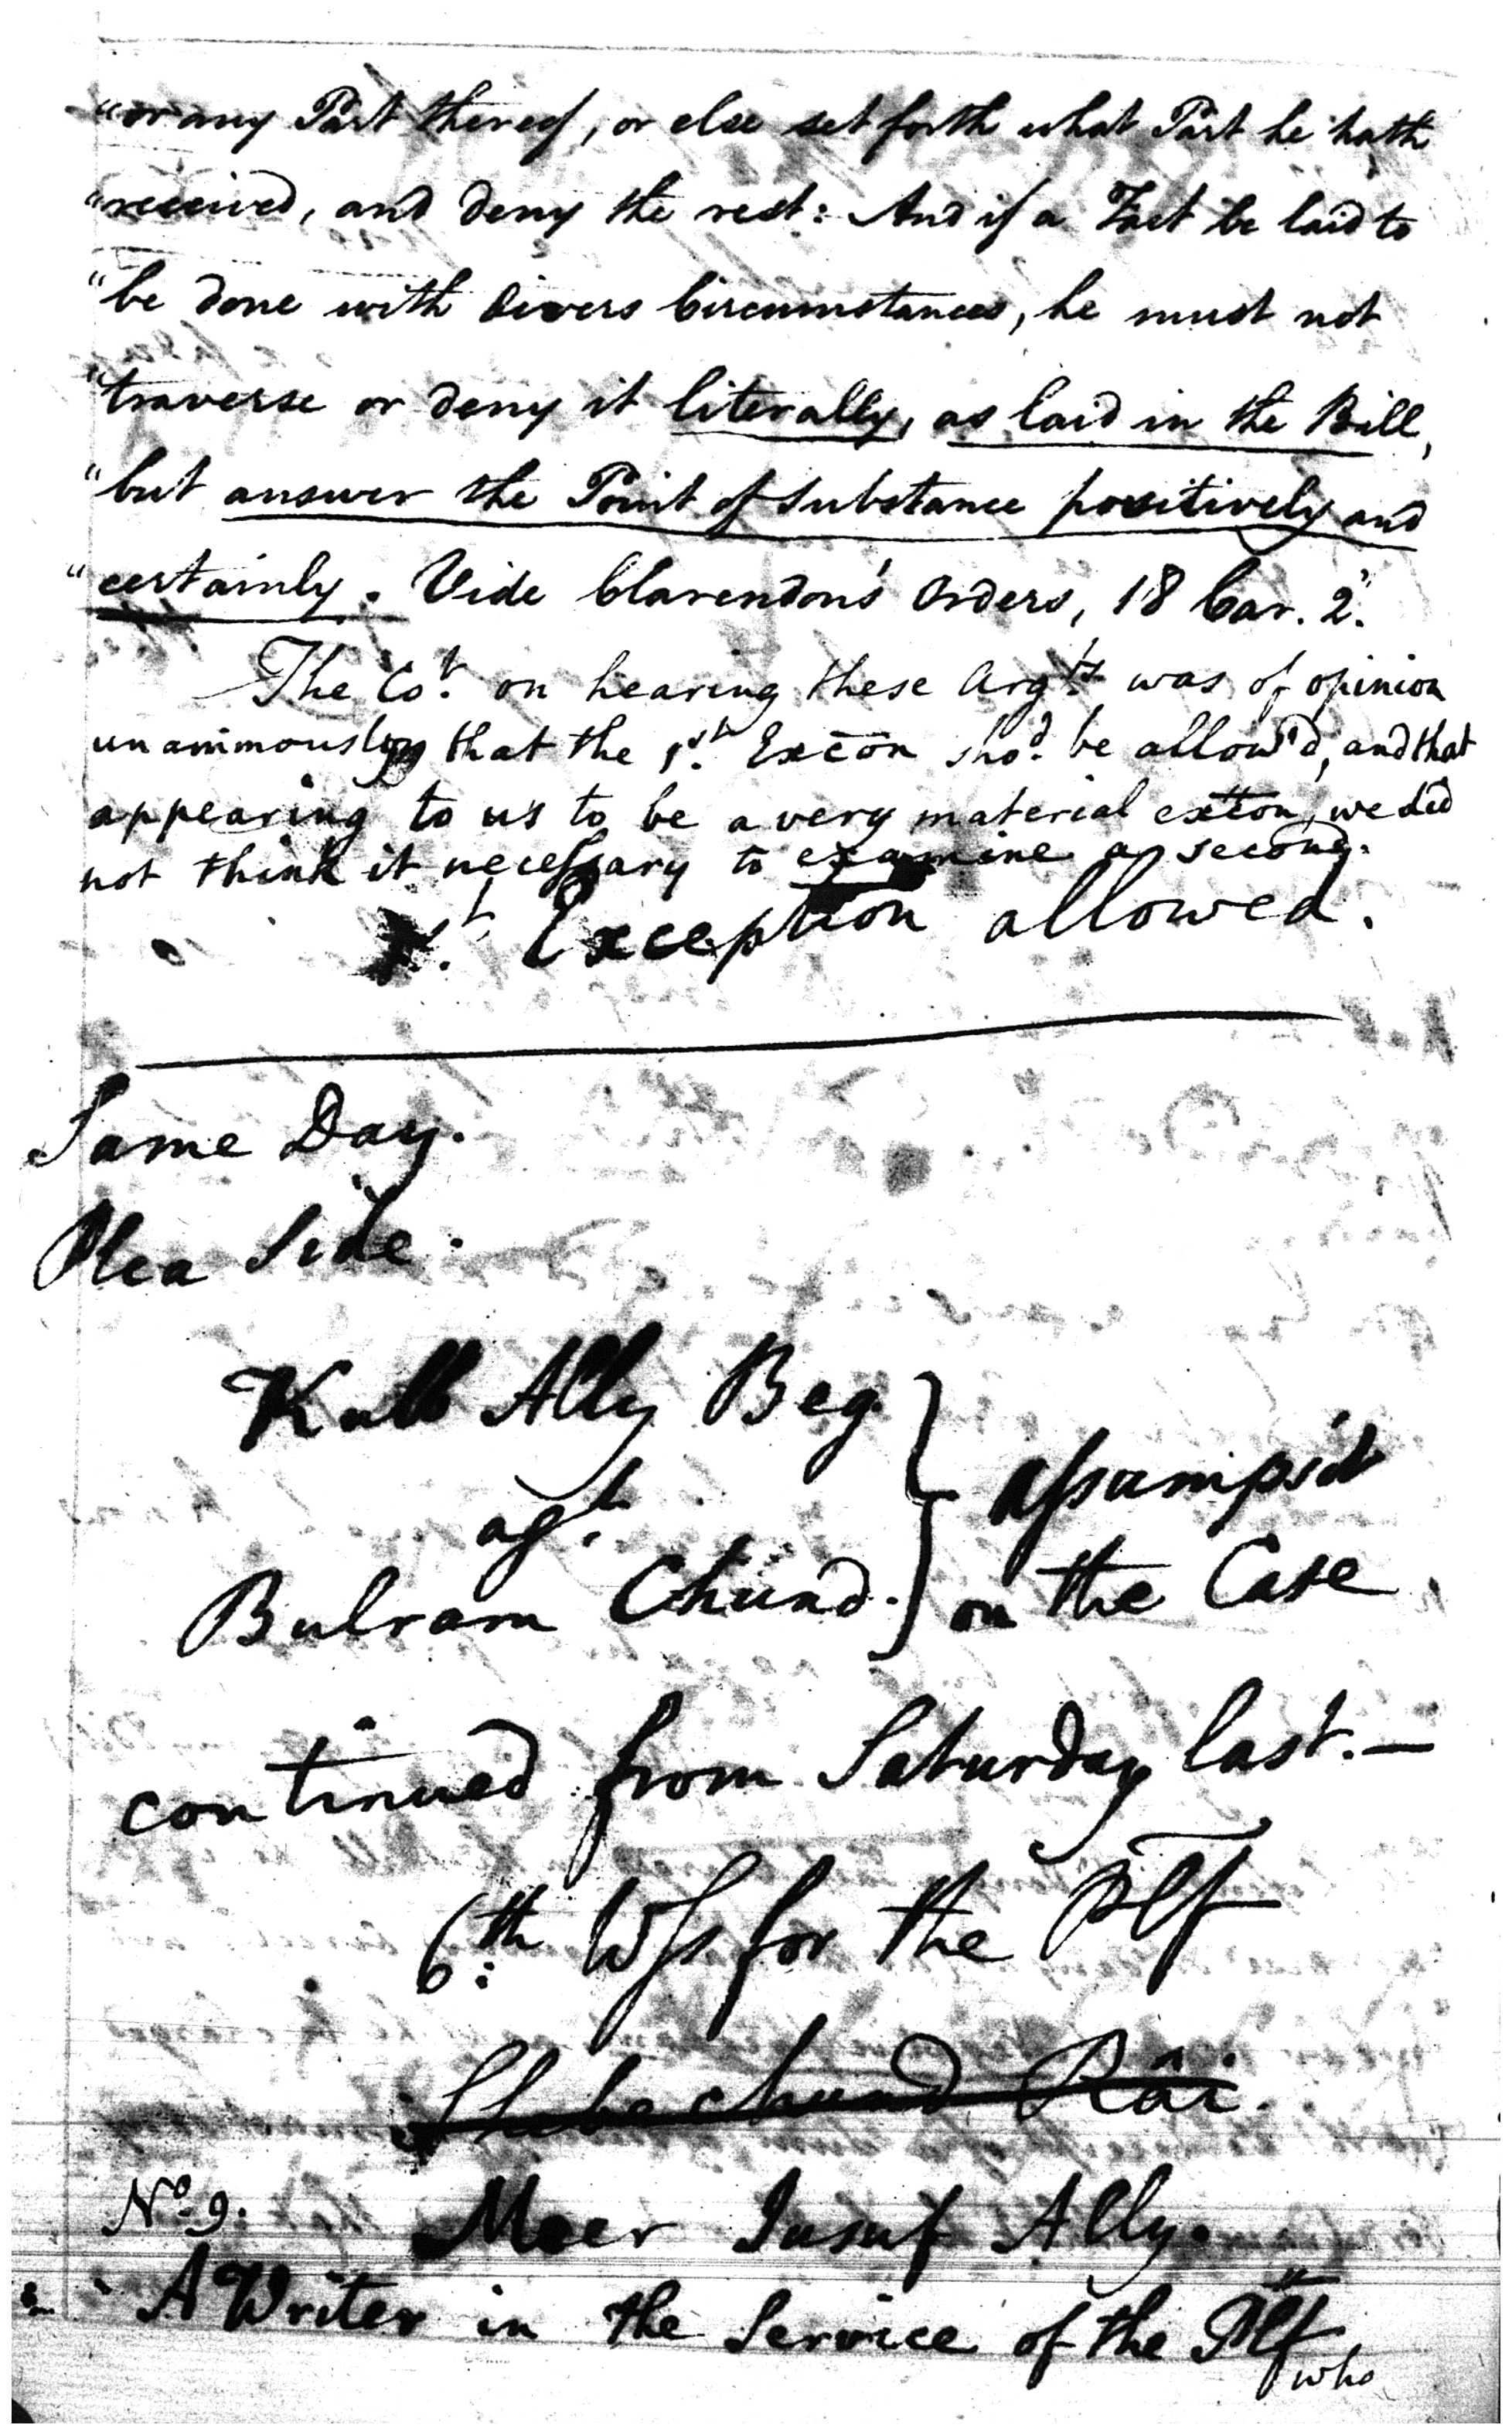 "or any Part thereof, or else set forth what Part he hath
"received, and deny the rest: And if a Fact be laid to
"be done with divers Circumstances, he must not
"traverse or deny it literally, as laid in the Bill,
"but answer the Point of Substance positively and
"certainly. Vide Clarendon's Orders, 18 Car. 2."
The Cot. on hearing these Argts. was of opinion
unanimously that the 1st. Excōn shod. be allow'd, and that
appearing to us to be a very material exttōn, we did
not think it necessary to examine a second.
1st. Exception allowed.
Same Day.
Plea Side.
Kulb Ally Beg.
agt.
Bulram Chund.
assumpsit
on the Case
continued from Saturday last.—
6th. Wss for the Plf
Shebe chund Râi.
No. 9. Meer Jusuf Ally.
A Writer in the Service of the Plf,
who